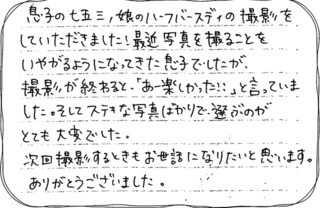 息子の七五三、娘のハーフバースディの撮影を
していただきました！最近写真を撮ることを
いやがるようになってきた息子でしたが、
撮影が終わると、「あー楽しかった!!」と言っていま
した。そしてステキな写真ばかりで、選ぶのが
とても大変でした。
次回撮影するときもお世話になりたいと思います。
ありがとうございました。